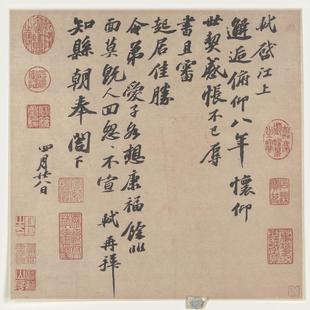 軾啓江上
邂逅俯仰八年懷仰
世契感悵不已辱
書且審
起居佳勝
令弟愛子各想康福餘非
面莫既人回忽々不宣軾再拜
知縣朝奉閣下
四月廿八日